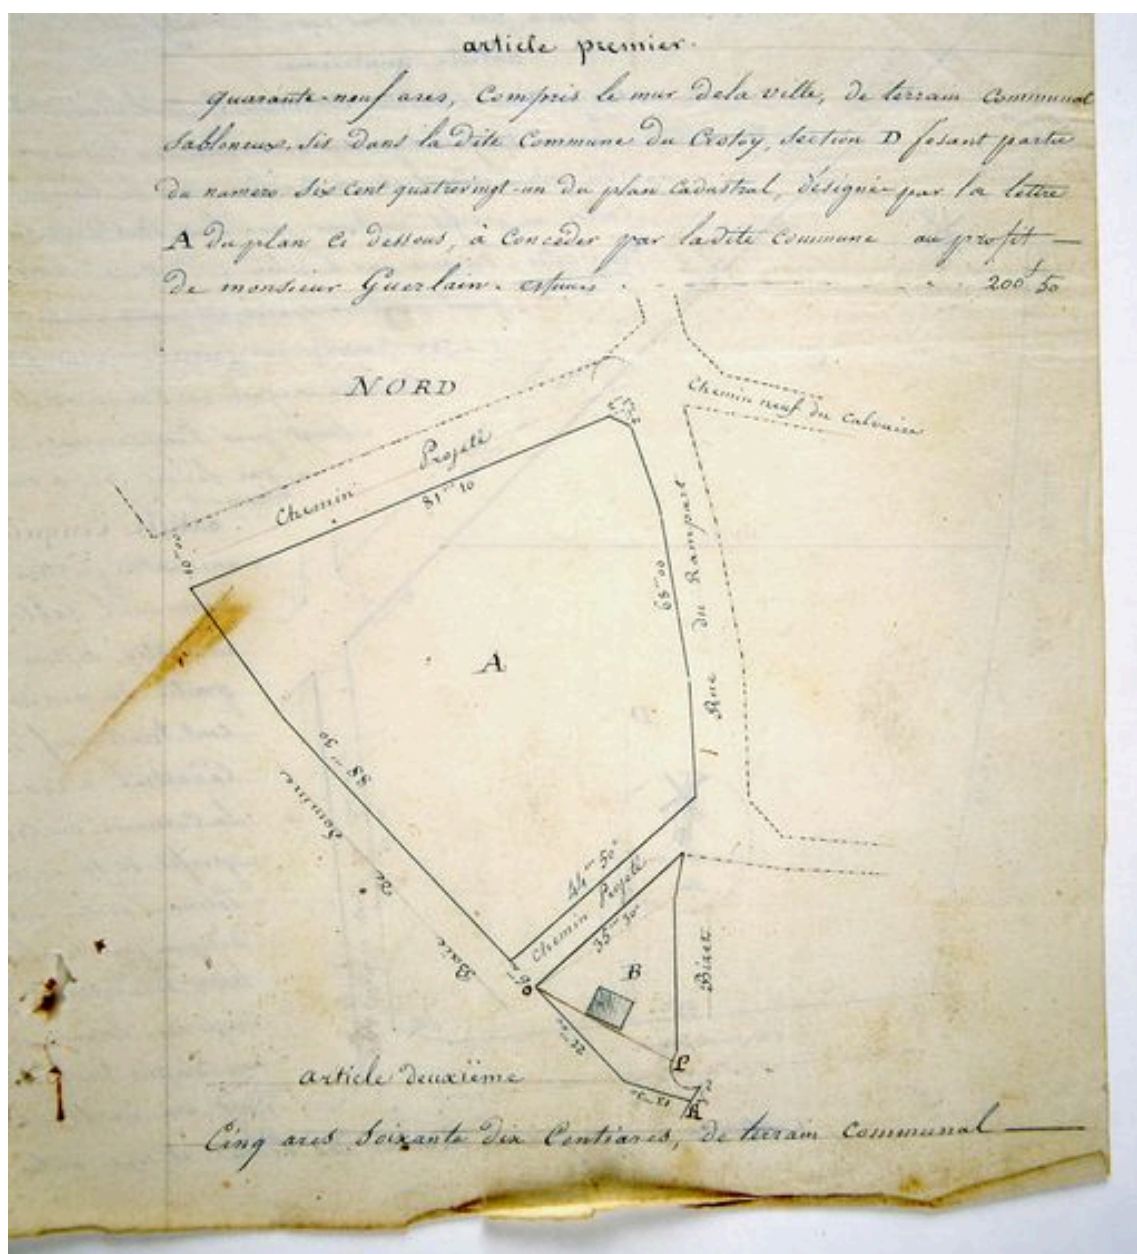 article premier.
quarante-neuf ares, Compris le mur de la ville, de terrain communal
Sabloneux, sis dans la dite Commune du Crotoy, Section D fesant partie
du numéro Six cent quatrevingt-un du plan Cadastral, désigné par la lettre
A du plan ci dessous, à Concéder par la dite Commune au profit —
de monsieur Guerlain. estimés 200 f 50
NORD
Chemin neuf du Calvaire
Chemin Projeté
81m 10
10m 00
68m 00
Rue du Rampart
A
88m 30
Baie de Somme
44m 50
Chemin Projeté
35m 30
6m
B
Bizet
22m 00
L
K
article deuxième
Cinq ares Soixante dix Centiares, de terrain Communal —